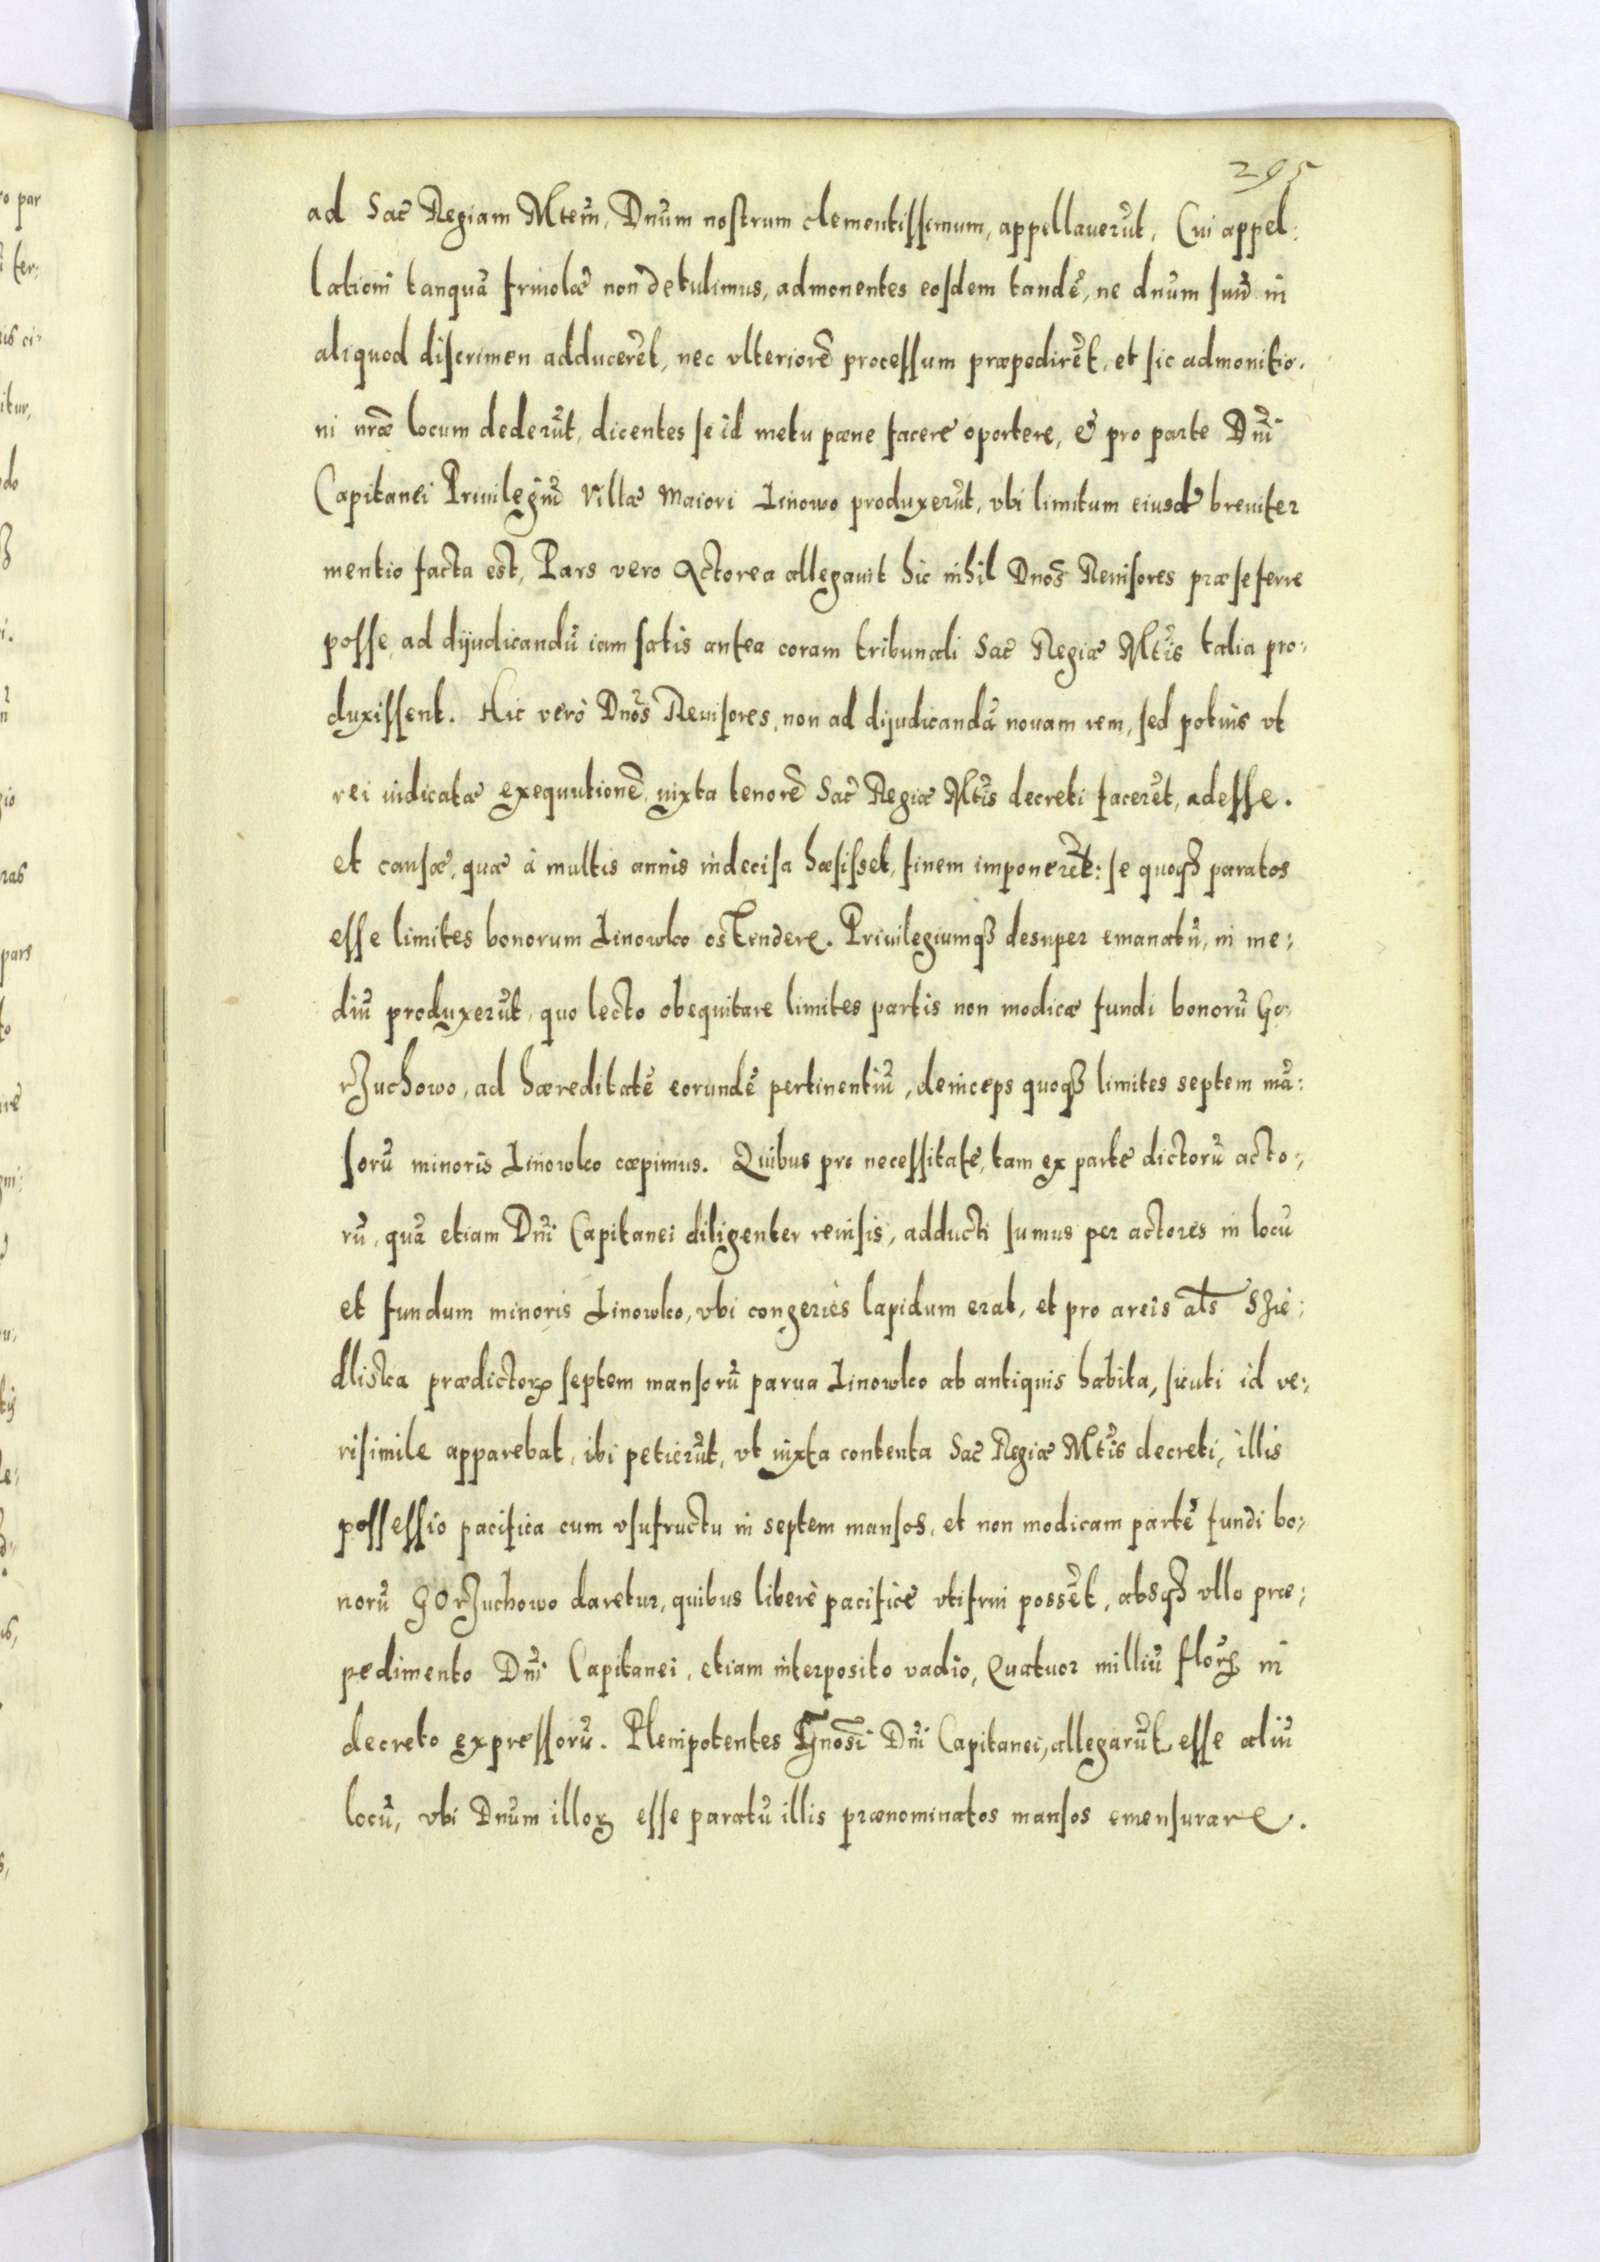 295
ad Sac̃ Regiam Mtem̃, Dnũm nostrum clementissimum, appellauerũt, Cui appel:
lationi tanquã friuolæ non detulimus, admonentes eosdem tandẽ, ne dnũm suũ in
aliquod discrimen adducerẽt, nec vlteriorẽ processum præpedirẽt, et sic admonitio.
ni nr̃æ locum dederũt, dicentes se id metu pæne facere oportere, & pro parte Dnĩ
Capitanei Priuilegiũ Villæ Maiori Linowo produxerũt, vbi limitum eiusdẽ breuiter
mentio facta est, Pars vero Actorea allegauit hic nihil Dnõs Reuisores præseferre
posse, ad dijudicandũ iam satis antea coram tribunali Sac̃ Regiæ Mtĩs talia pro,
duxissent. Hic verò Dnõs Reuisores, non ad dijudicandã nouam rem, sed potius vt
rei iudicatæ exequutionẽ, iuxta tenorẽ Sac̃ Regiæ Mtĩs decreti facerẽt, adesse.
et causæ, quæ à multis annis indecisa hæsisset, finem imponerẽt: se quoqȝ paratos
esse limites bonorum Linowko ostendere. Priuilegiumqȝ desuper emanatũ, in me;
diũ produxerũt, quo lecto obequitare limites partis non modicæ fundi bonorũ Go,
rzuchowo, ad hæreditatẽ eorundẽ pertinentiũ, deinceps quoqȝ limites septem mã:
sorũ minoris Linowko cæpimus. Quibus pro necessitate, tam ex parte dictorũ acto;
rũ, quã etiam Dnĩ Capitanei diligenter reuisis, adducti sumus per actores in locũ
et fundum minoris Linowko, vbi congeries lapidum erat, et pro areis al̃s Szie;
dliska prædictorꝝ septem mansorũ parua Linowko ab antiquis habita, sicuti id ve;
risimile apparebat, ibi petierũt, vt iuxta contenta Sac̃ Regiæ Mtĩs decreti, illis
possessio pacifica cum vsufructu in septem mansos, et non modicam partẽ fundi bo,
norũ Gorzuchowo daretur, quibus liberè pacificè vtifrui possẽt, absqȝ vllo præ;
pedimento Dnĩ Capitanei, etiam interposito vadio, Quatuor milliũ florꝝ in
decreto expressorũ. Plenipotentes Gnõsi Dnĩ Capitanei, allegarũt esse aliũ
locũ, vbi Dnũm illorꝝ esse paratũ illis prænominatos mansos emensurare.